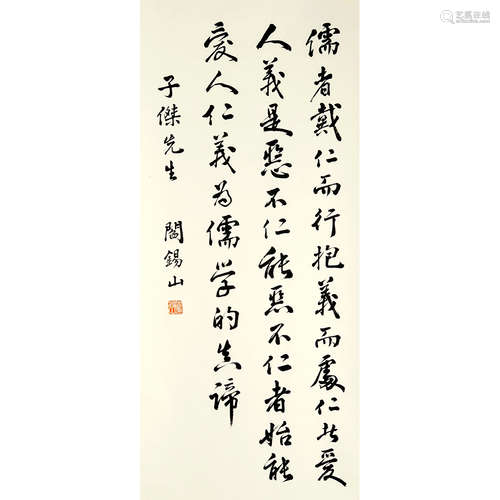 儒者戴仁而行抱義而處仁是愛
人義是惡不仁能惡不仁者始能
愛人仁義為儒学的真諦
子傑先生 閻錫山